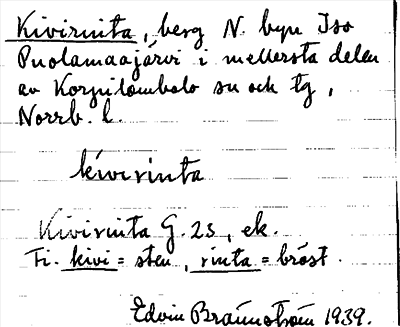 Kivirinta, berg N. byn Iso
Puolamaajärvi i mellersta delen
av Korpilombolo sn och tg,
Norrb. l.
kivirinta
Kivirinta G. 25, ek.
Fi. kivi = sten, rinta = bröst.
Edvin Brännström 1939.